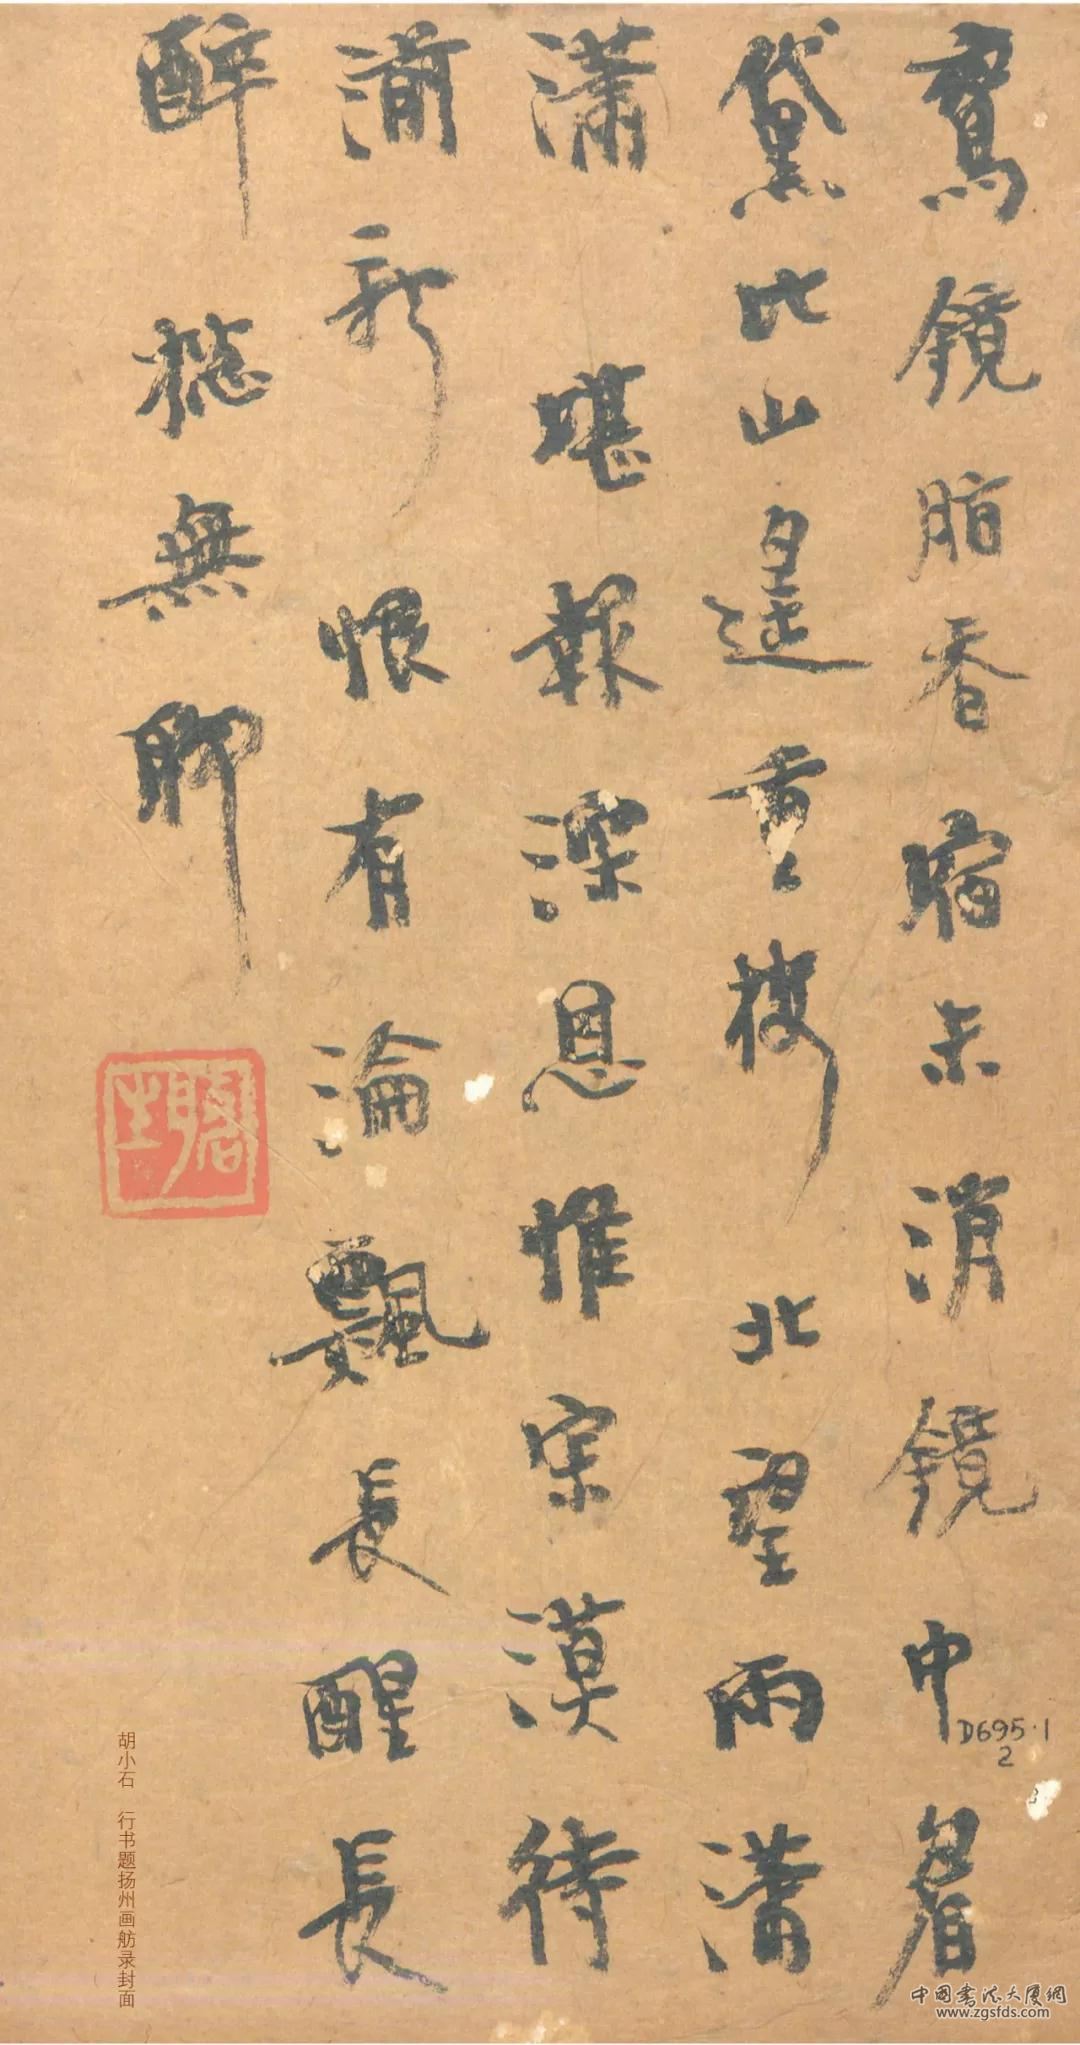 鴛鏡脂香未消鏡中眉
黛比山遥重樓北望雨瀟
瀟堪報深恩惟寂漠待
湔新恨有淪飄長醒長
醉摠無聊
D695·1
2
胡小石 行书题扬州画舫录封面
中国书法大厦網
www.zgsfds.com